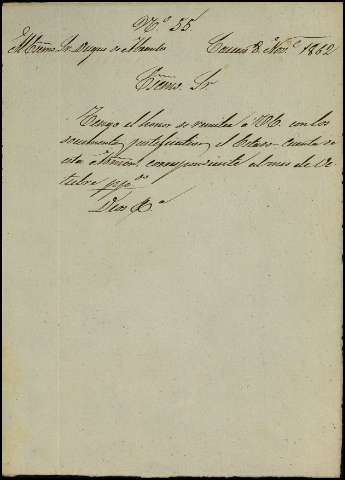 Nº 55.
Al Excmo. Sr. Duque de 8 Novr. 1862
Excmo. Sr.
Tengo el honor de remitir á V.E. con los
documentos justificativos el Estado-cuenta de
esta correspondiente al mes de Oc-
tubre ppdo.
Dios &a